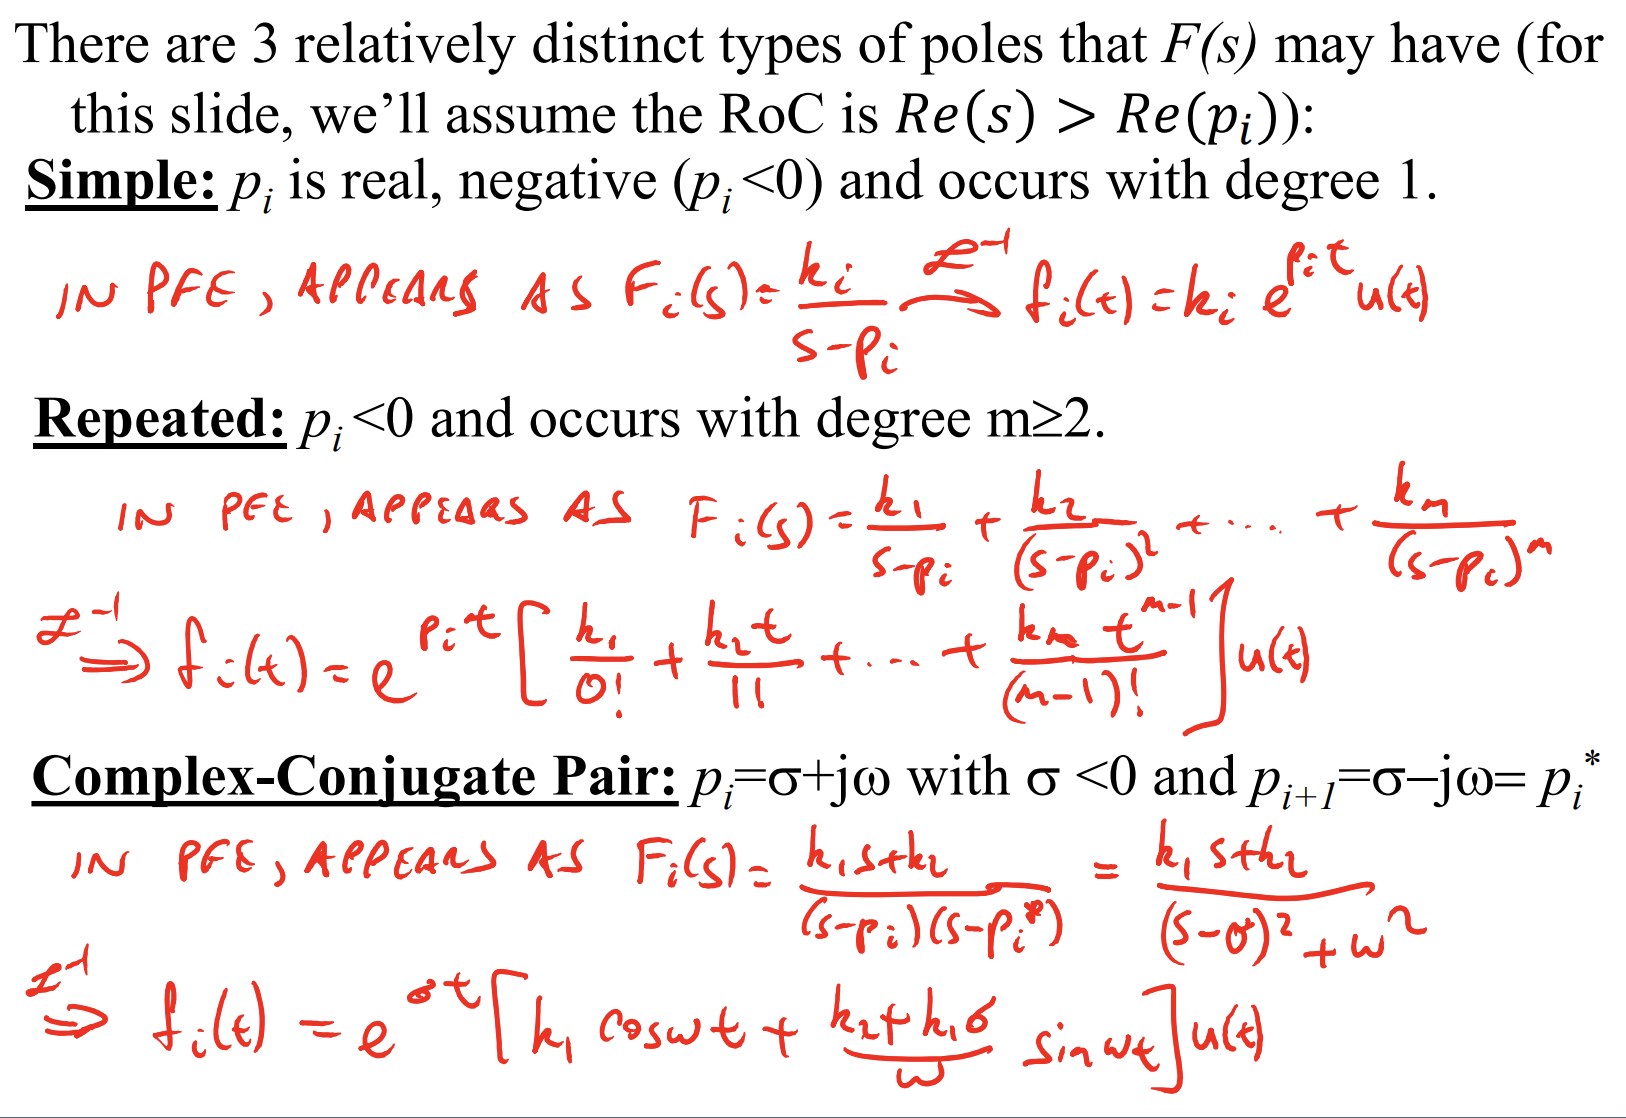 There are 3 relatively distinct types of poles that F(s) may have (for
this slide, we'll assume the RoC is Re(s) > Re(pᵢ)):
Simple: pᵢ is real, negative (pᵢ <0) and occurs with degree 1.
IN PFE, APPEARS AS Fᵢ(s) = kᵢ/(s-pᵢ) ℒ⁻¹→ fᵢ(t) = kᵢ e^(pᵢt) u(t)
Repeated: pᵢ <0 and occurs with degree m≥2.
IN PFE, APPEARS AS Fᵢ(s) = k₁/(s-pᵢ) + k₂/(s-pᵢ)² + .... + kₘ/(s-pᵢ)^m
ℒ⁻¹⇒ fᵢ(t) = e^(pᵢt) [k₁/0! + k₂t/1! + .... + kₘt^(m-1)/(m-1)!] u(t)
Complex-Conjugate Pair: pᵢ=σ+jω with σ <0 and pᵢ₊₁=σ–jω= pᵢ*
IN PFE, APPEARS AS Fᵢ(s) = (k₁s+k₂)/((s-pᵢ)(s-pᵢ*)) = (k₁s+k₂)/((s-σ)²+ω²)
ℒ⁻¹⇒ fᵢ(t) = e^(σt) [k₁ cosωt + (k₂+k₁σ)/ω sinωt] u(t)